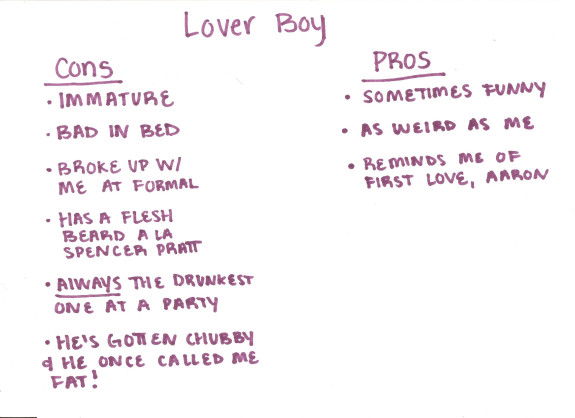 Lover Boy
Cons
• IMMATURE
• BAD IN BED
• BROKE UP W/
ME AT FORMAL
• HAS A FLESH
BEARD A LA
SPENCER PRATT
• AlWAYS THE DRUNKEST
ONE AT A PARTY
• HE'S GOTTEN CHUBBY
& HE ONCE CALLED ME
FAT!
PROS
• SOMETIMES FUNNY
• AS WEIRD AS ME
• REMINDS ME OF
FIRST LOVE, AARON